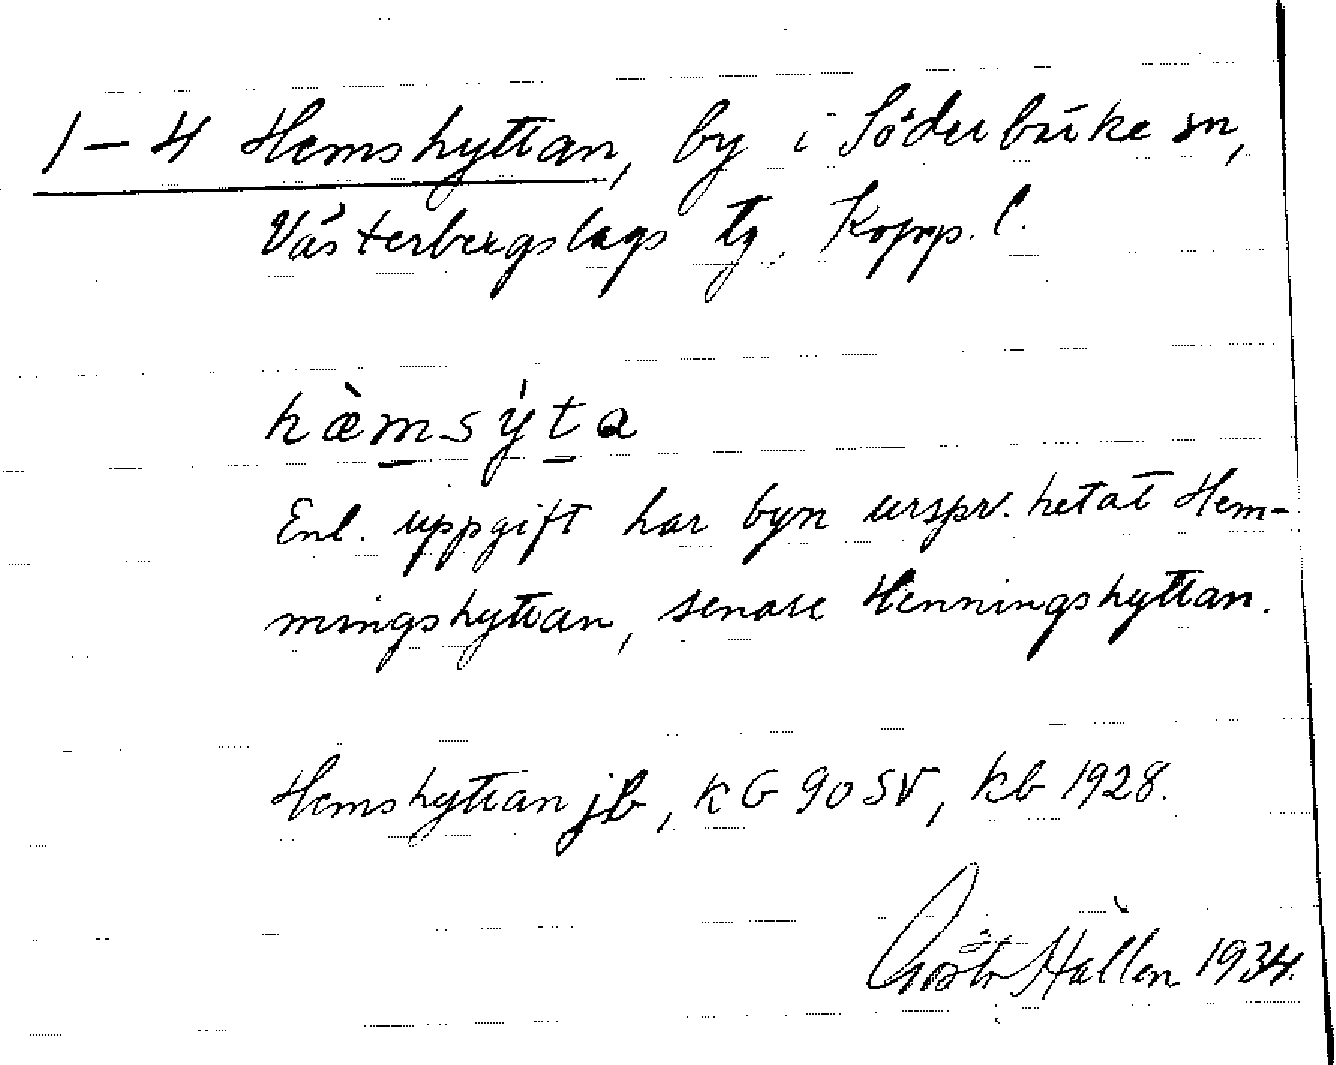 1–4 Hemshyttan, by i Söderbärke sn,
Västerbergslags tg. Kopp. l.
hæ̀msýta
Enl. uppgift har byn urspr. hetat Hem-
mingshyttan, senare Henningshyttan.
Hemshyttan jb, KG 90 SV, kb 1928.
Gösta Hallén 1934.